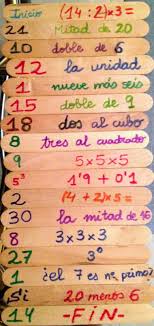 Inicio (14:2)x3=
21 Mitad de 20
10 doble de 6
12 la unidad
1 nueve más seis
15 doble de 9
18 dos al cubo
8 tres al cuadrado
9 5x5x5
5³ 1'9 + 0'1
2 (4+2)x5=
30 la mitad de 16
8 3x3x3
27 3⁰
1 ¿el 7 es nº primo?
Sí 20 menos 6
14 -FiN-